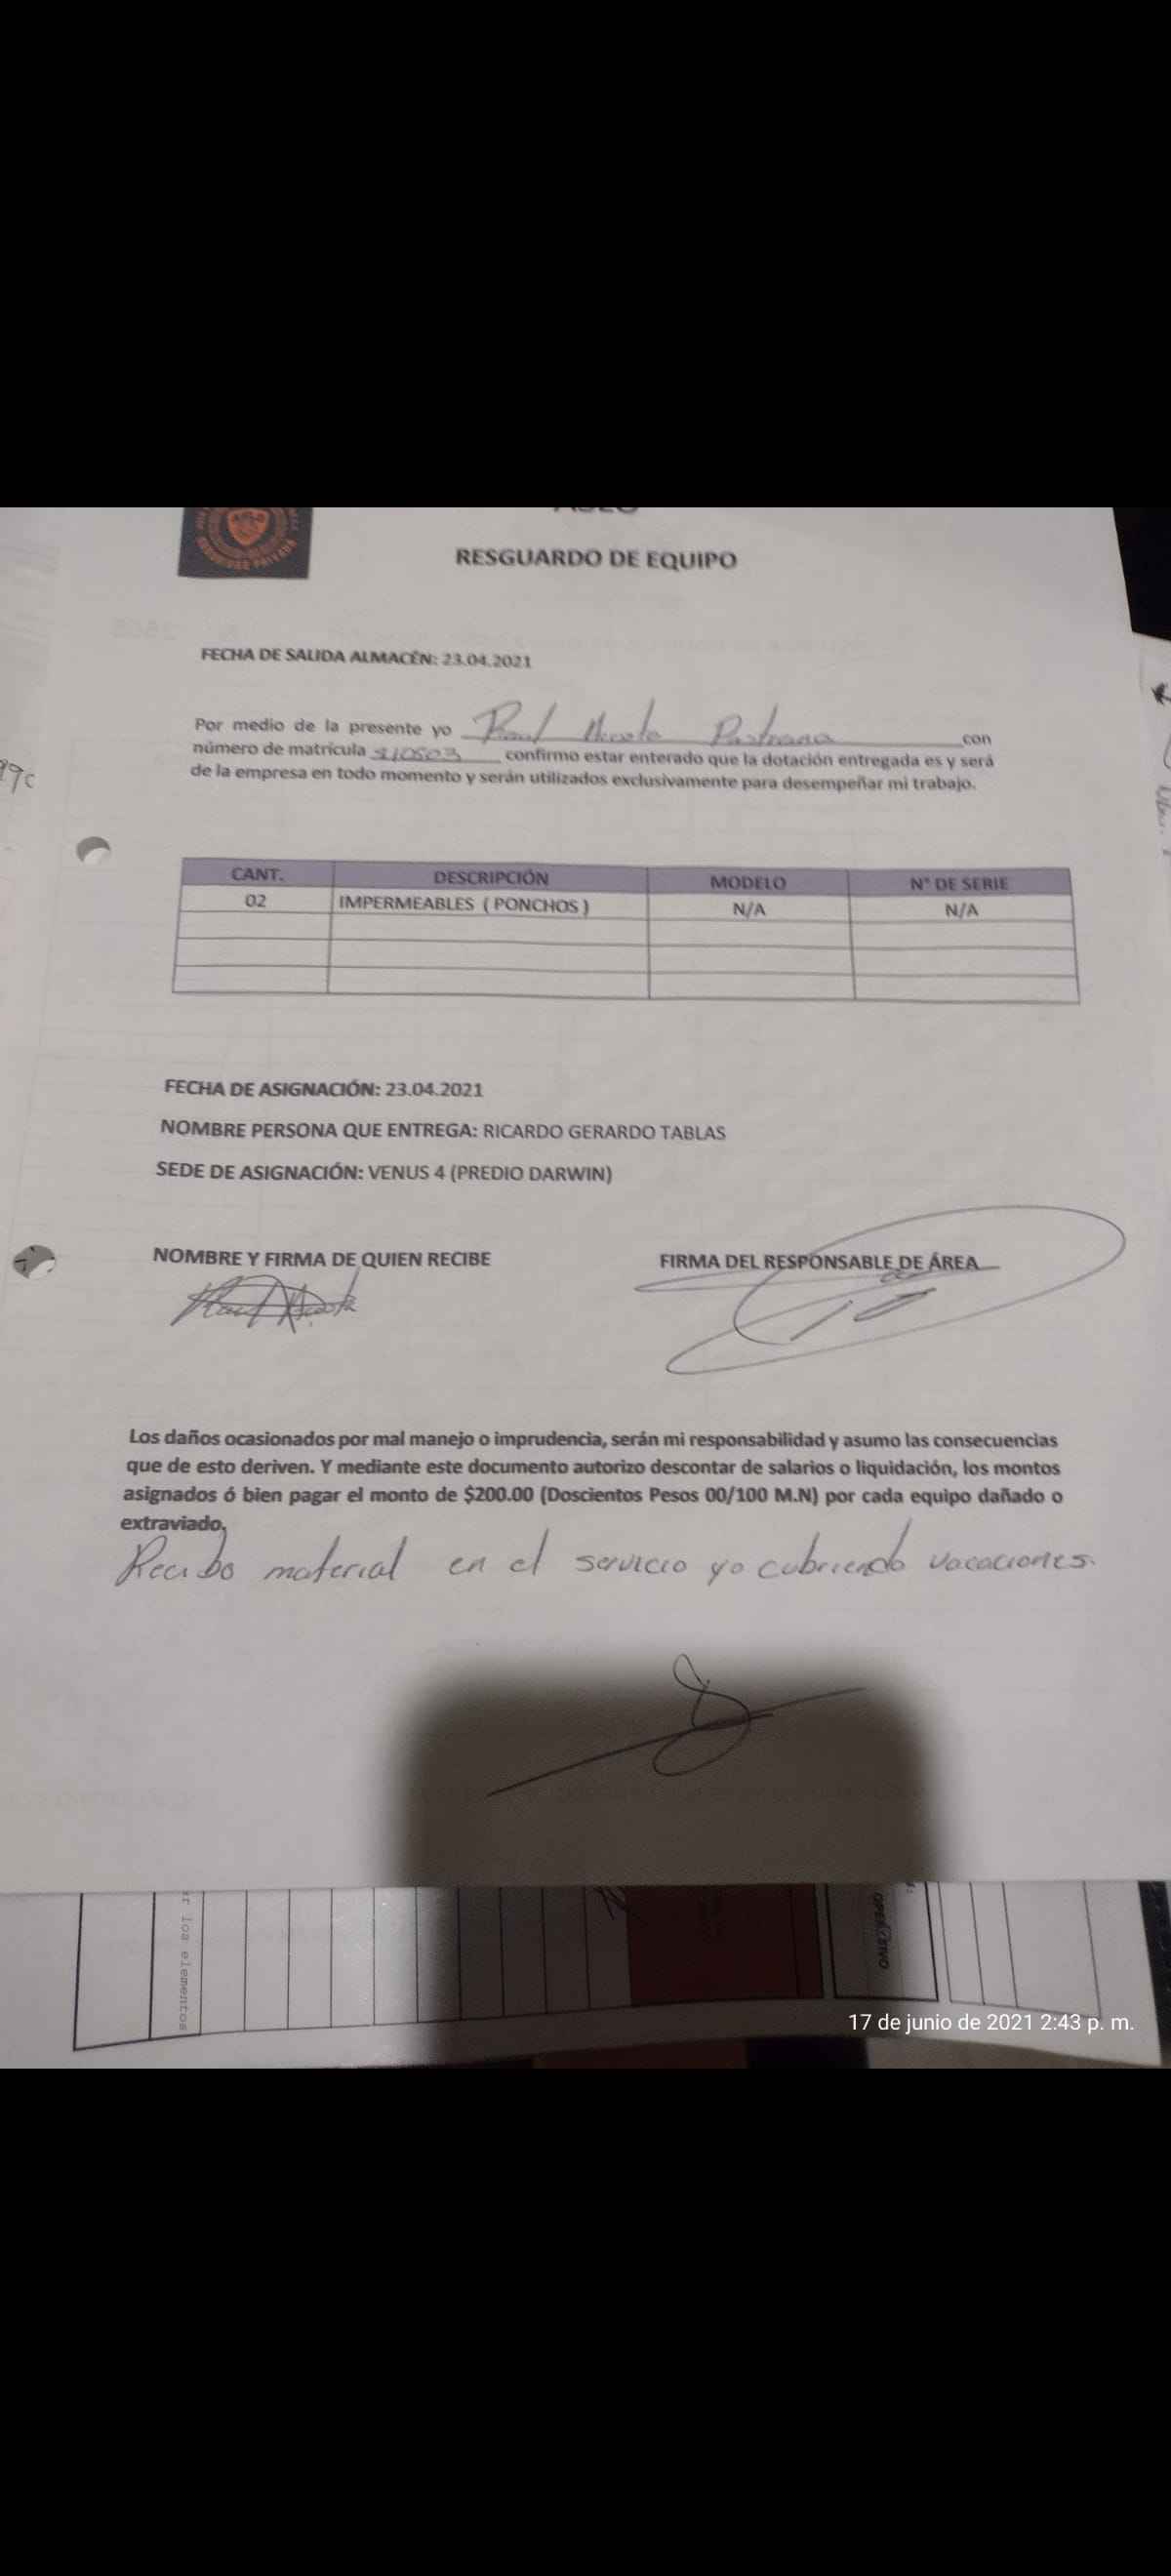 SEGURIDAD PRIVADA
RESGUARDO DE EQUIPO
FECHA DE SALIDA ALMACÉN: 23.04.2021
Por medio de la presente yo Raul Acosta Pastrana con
número de matrícula confirmo estar enterado que la dotación entregada es y será
de la empresa en todo momento y serán utilizados exclusivamente para desempeñar mi trabajo.
CANT. DESCRIPCIÓN MODELO N° DE SERIE
02 IMPERMEABLES ( PONCHOS ) N/A N/A
FECHA DE ASIGNACIÓN: 23.04.2021
NOMBRE PERSONA QUE ENTREGA: RICARDO GERARDO TABLAS
SEDE DE ASIGNACIÓN: VENUS 4 (PREDIO DARWIN)
NOMBRE Y FIRMA DE QUIEN RECIBE FIRMA DEL RESPONSABLE DE ÁREA
Raul Acosta
Los daños ocasionados por mal manejo o imprudencia, serán mi responsabilidad y asumo las consecuencias
que de esto deriven. Y mediante este documento autorizo descontar de salarios o liquidación, los montos
asignados ó bien pagar el monto de $200.00 (Doscientos Pesos 00/100 M.N) por cada equipo dañado o
extraviado.
Recibo material en el servicio yo cubriendo vacaciones.
los elementos
17 de junio de 2021 2:43 p. m.